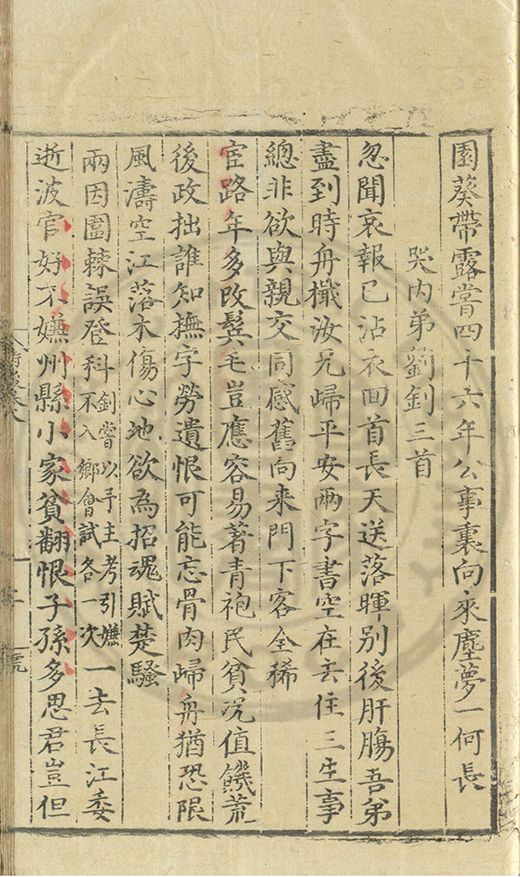 園葵帶露嘗四十六年公事裏向來塵夢一何長
哭內弟劉釗三首
忽聞哀報已沾衣回首長天送落暉別後肝膓吾弟
盡到時舟檝汝兄歸平安兩字書空在去住三生事
總非欲與親交同感舊向来門下客全稀
宦路年多改鬂毛豈應容易著青袍民貧况值饑荒
後政拙誰知撫字勞遺恨可能忘骨肉歸舟猶恐限
風濤空江落木傷心地欲為招魂賦楚騷
兩因圍棘誤登科釗嘗以予主考引嫌不入鄉會試各一次一去長江委
逝波官好不嫌州縣小家貧翻恨子孫多思君豈但